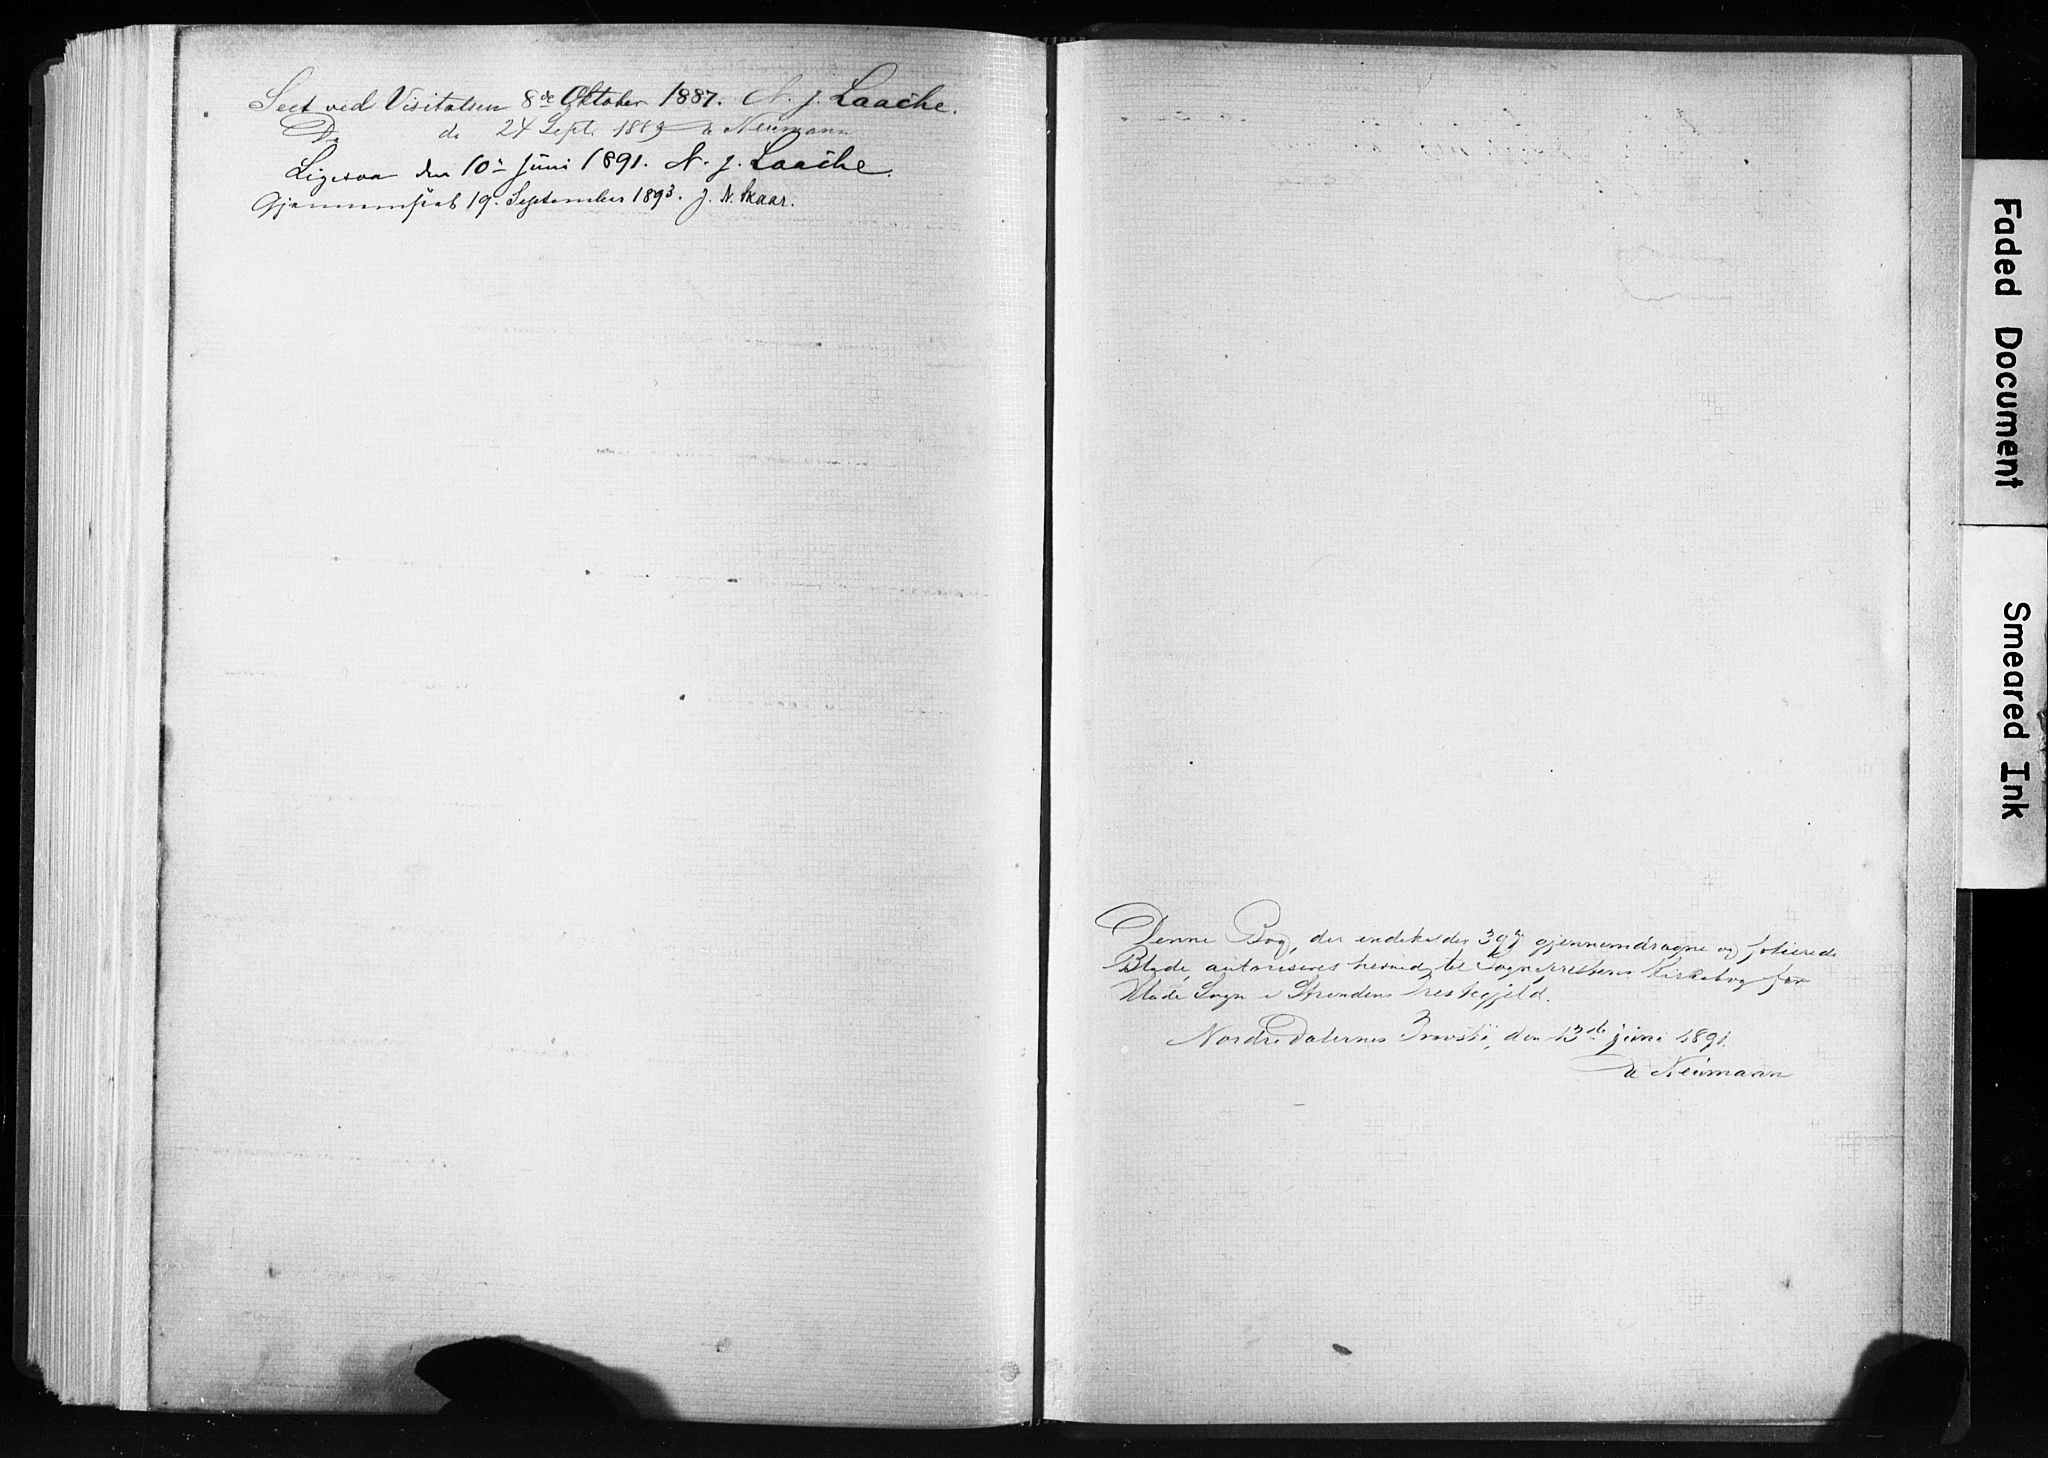 Seet ved Visitatsen 8de Oktober 1887. N. J. Laache.
Do do 24 Septr 1889 Neumann
Ligesaa den 10de Juni 1891. N. J. Laache.
Gjennemseet 19. September 1893. J. N. Skaar.
Denne Bog, der indeholder 397 gjennemdragne og folierede
Blade, autoriseres herved til Sognepræstens Kirkebog for
Klæbo Sogn i Strindens Præstegjeld.
Nordre Dalernes Provsti, den 13de Juni 1891.
Neumann
Faded Document
Smeared Ink